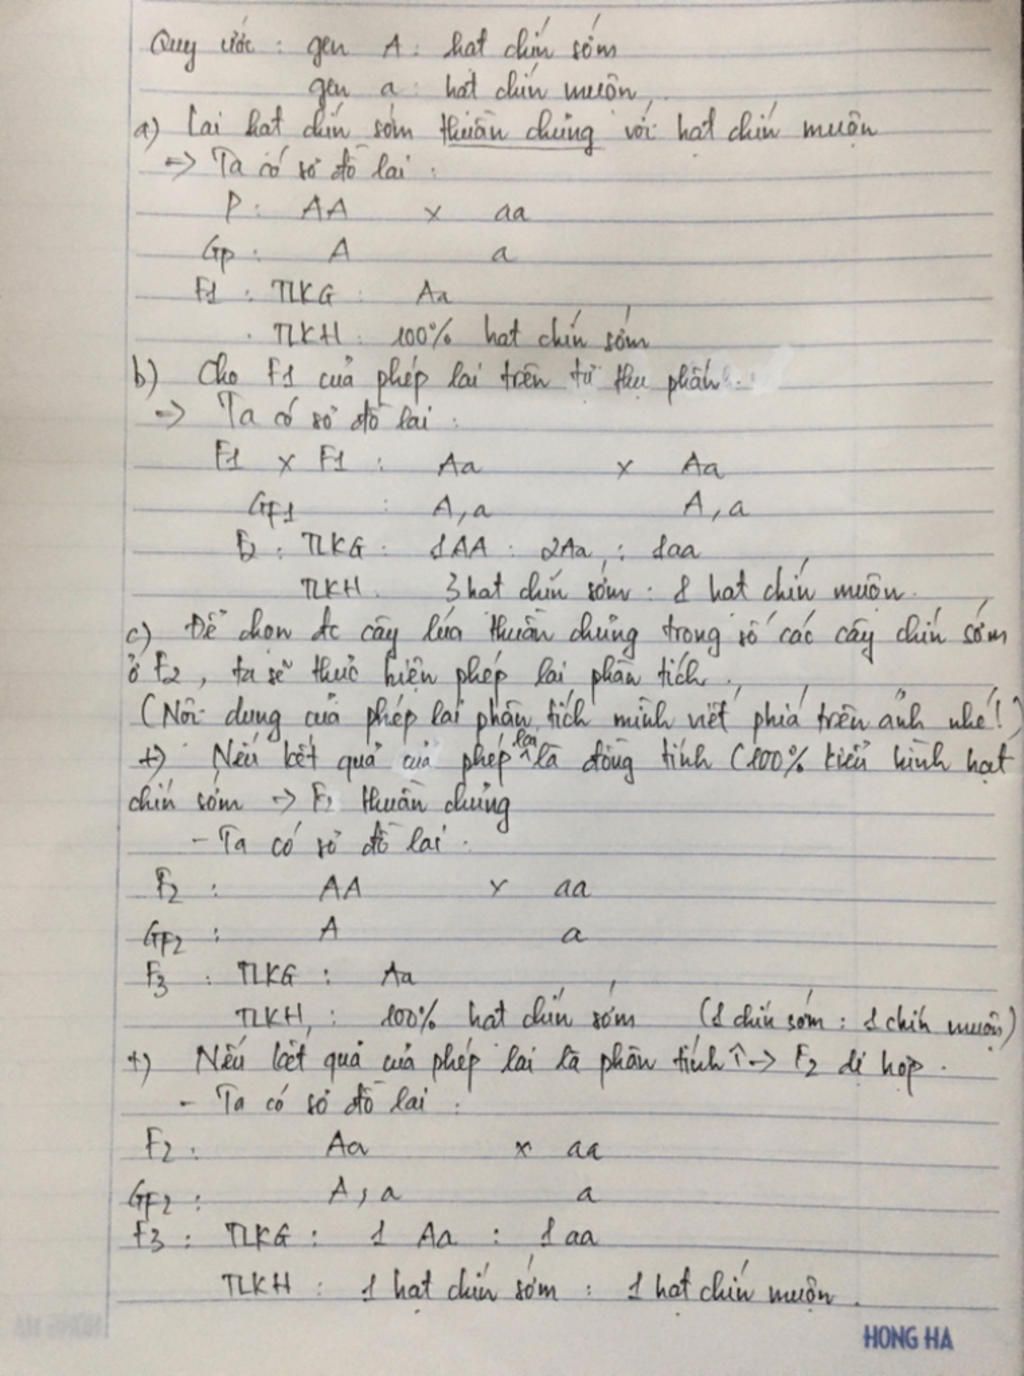 Quy ước : gen A : hạt chín sớm
gen a : hạt chín muộn
a) Lai hạt chín sớm thuần chủng với hạt chín muộn
=> Ta có sơ đồ lai :
P : AA x aa
Gp : A a
F1 : TLKG : Aa
TLKH : 100% hạt chín sớm
b) Cho F1 của phép lai trên tự thụ phấn.
=> Ta có sơ đồ lai :
F1 x F1 : Aa x Aa
GF1 : A, a A, a
F2 : TLKG : 1AA : 2Aa : 1aa
TLKH : 3 hạt chín sớm : 1 hạt chín muộn.
c) Để chọn đc cây lúa thuần chủng trong số các cây chín sớm
ở F2, ta sẽ thực hiện phép lai phân tích.
(Nội dung của phép lai phân tích mình viết phía trên ảnh nhé!)
+) Nếu kết quả của phép lai là đồng tính (100% kiểu hình hạt
chín sớm -> F2 thuần chủng
- Ta có sơ đồ lai :
F2 : AA x aa
GF2 : A a
F3 : TLKG : Aa
TLKH : 100% hạt chín sớm (1 chín sớm : 1 chín muộn)
+) Nếu kết quả của phép lai là phân tính ↑ -> F2 dị hợp.
- Ta có sơ đồ lai :
F2 : Aa x aa
GF2 : A, a a
F3 : TLKG : 1 Aa : 1 aa
TLKH : 1 hạt chín sớm : 1 hạt chín muộn.
HONG HA